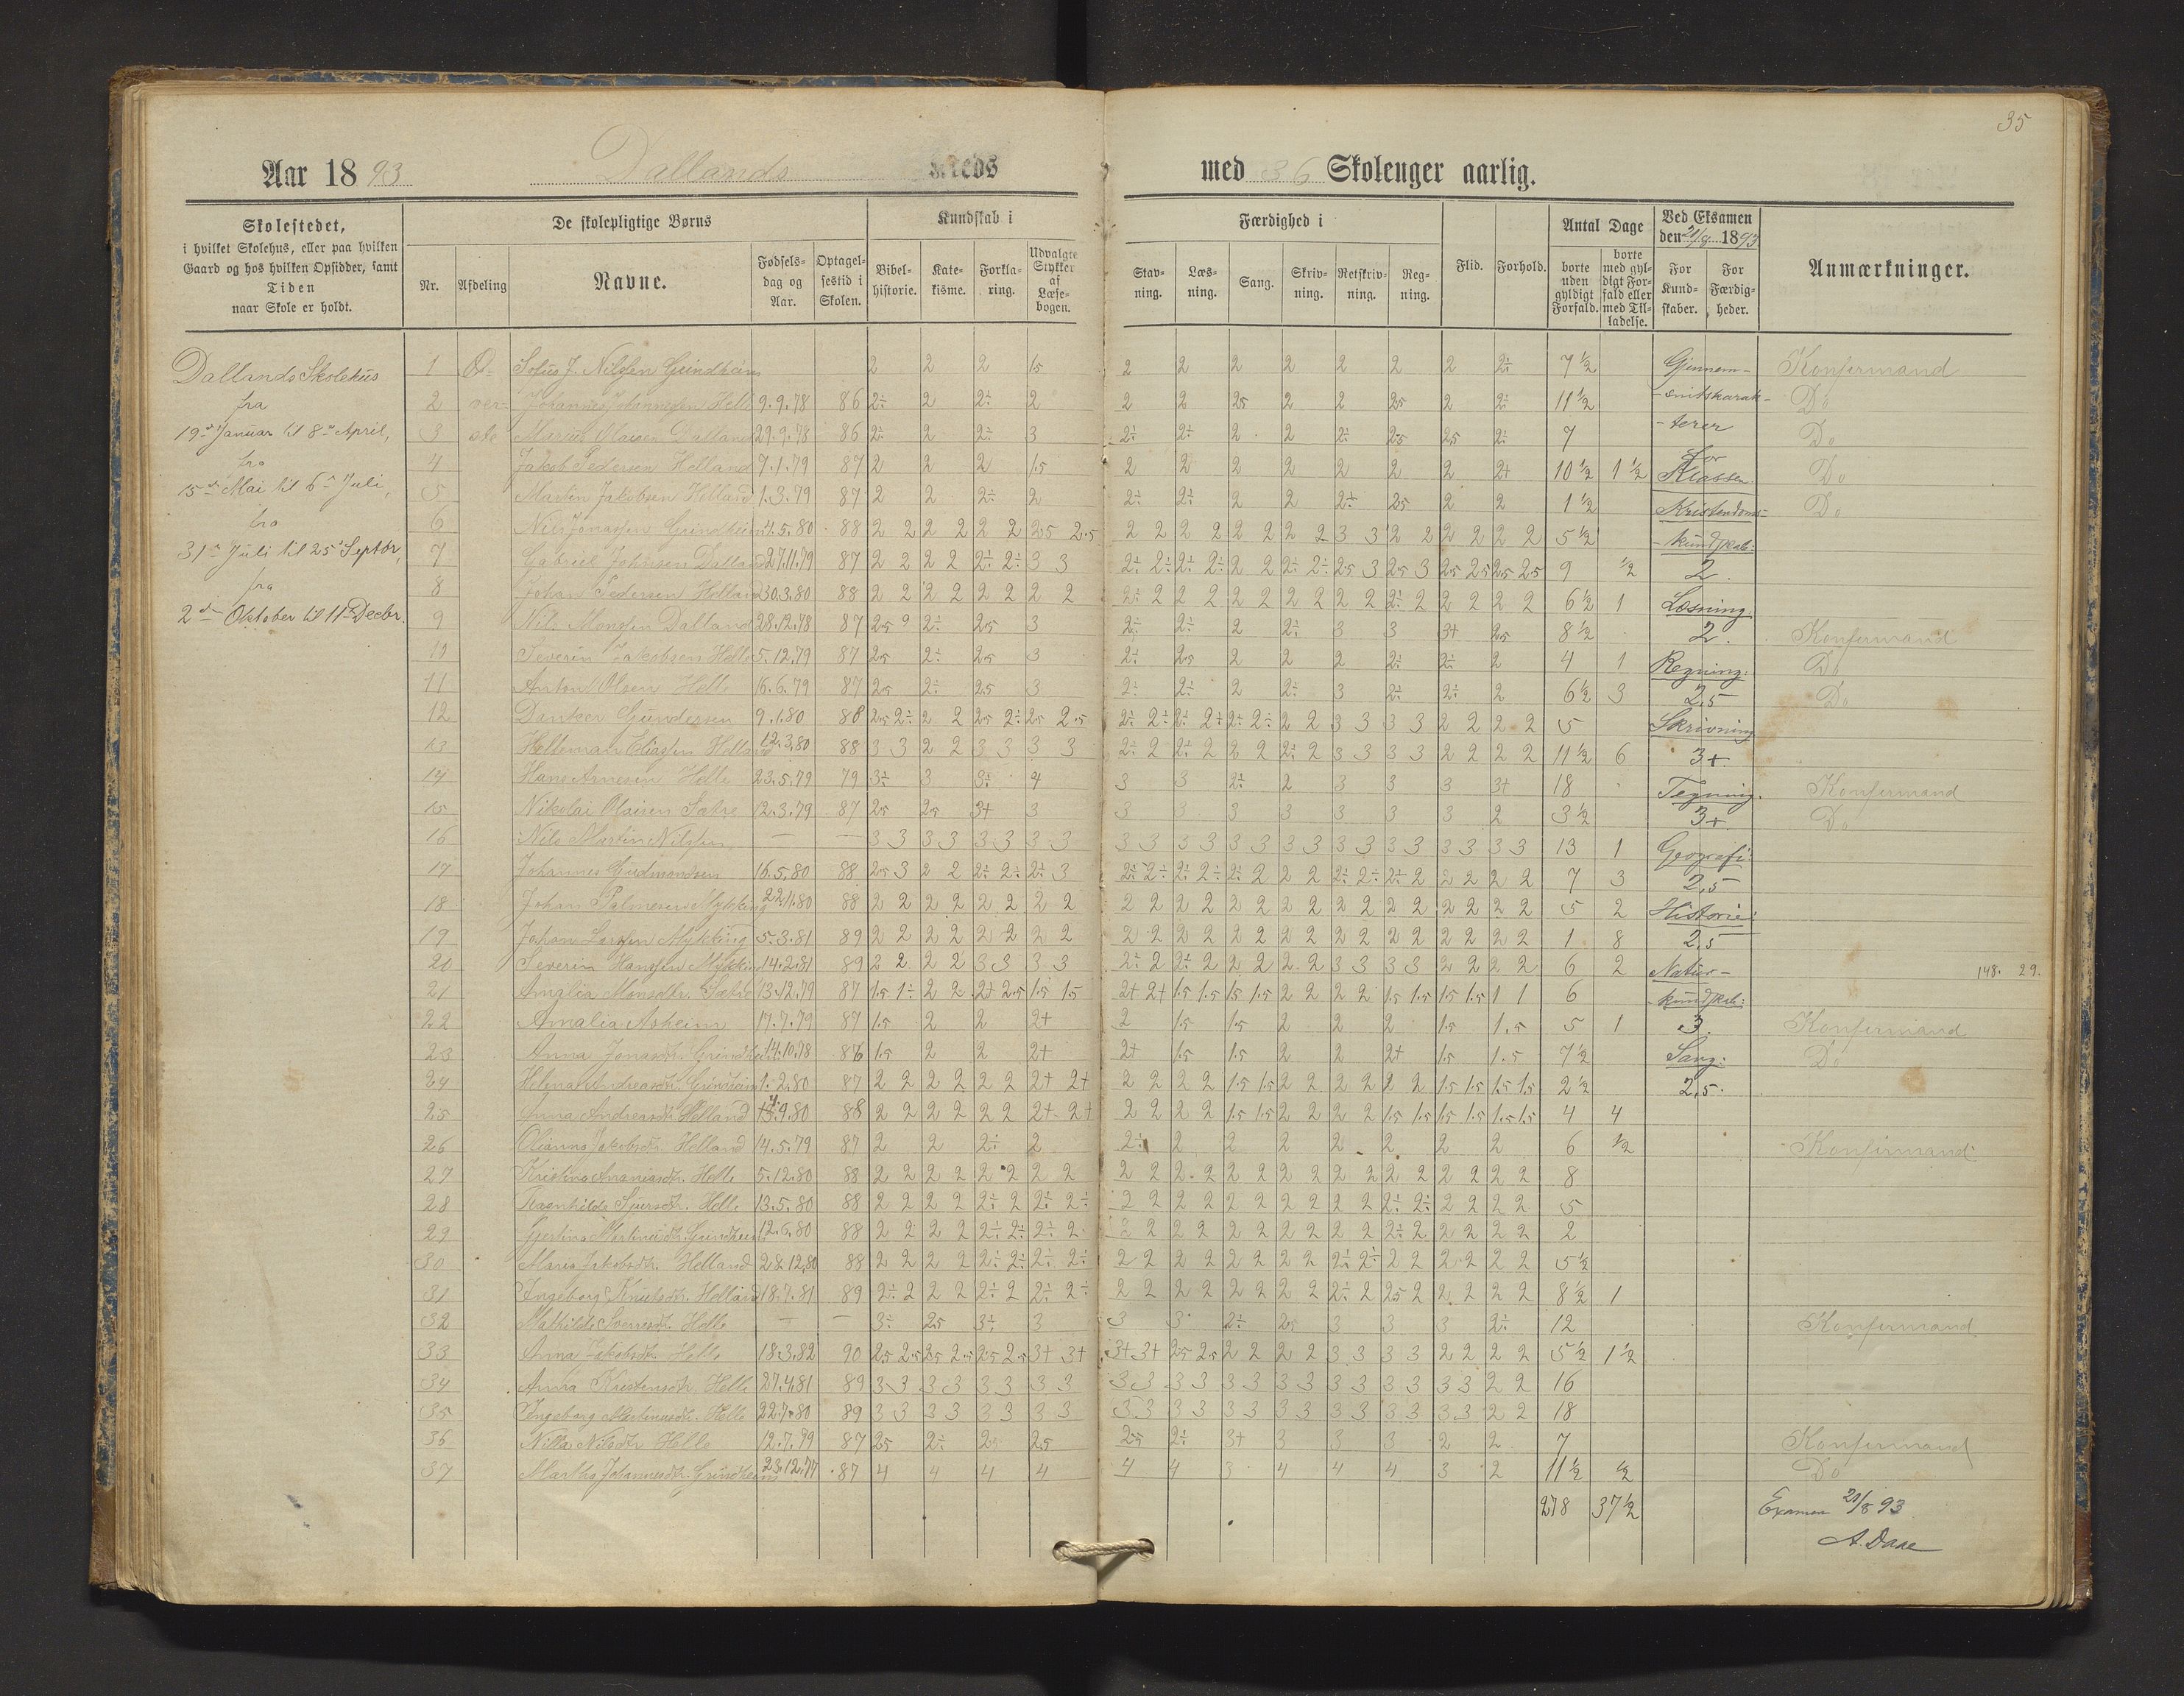 35
Aar 1893 Dallands Kreds med 36 Skolenger aarlig.
Skolestedet, i hvilket Skolehus, eller paa hvilken Gaard og hos hvilken Opsidder, samt Tiden naar Skole er holdt.
De skolepligtige Børns
Nr. Afdeling Navne. Fødselsdag og Aar. Optagelsestid i Skolen.
Kundskab i
Bibelhistorie. Katekisme. Forklaring. Udvalgte Stykker af Læsebogen.
Færdighed i
Stavning. Læsning. Sang. Skrivning. Retskrivning. Regning. Flid. Forhold.
Antal Dage
borte uden gyldigt Forfald. borte med gyldigt Forfald eller med Tilladelse.
Ved Eksamen den 21/8 1893
For Kundskaber. For Færdigheder.
Anmærkninger.
Dallands Skolehus
fra
19de Januar til 8de April,
fra
15de Mai til 6te Juli,
fra
31te Juli til 25 Septbr,
fra
2den Oktober til 11te Decbr.
1 Ø- 2 2 2 1.5 2 2 2 2 2 2 2 2÷ 7½ Konfirmand
2 ver- Johannes Johannessen Helle 9.9.78 86 2÷ 2 2÷ 2 2 2 2.5 2 2 2.5 2 2÷ 11½ Do
3 ste Marius Olaisen Dalland 29.9.78 86 2÷ 2 2÷ 3 2÷ 2÷ 2 2 2÷ 2.5 2.5 2÷ 7 Do
4 Jakob Pedersen Helland 7.1.79 87 2 2 2 1.5 2 2 2 2 2 2 2 2+ 10½ 1½ Do
5 Martin Jakobsen Helland 1.3.79 87 2 2 2÷ 2 2÷ 2÷ 2 2 2÷ 2.5 2 2 1½ Do
6 Nils Jonassen Grindheim 4.5.80 88 2 2 2 2 2 2 2.5 2.5 2 2 2 2 2 2 2 2 3 3 2 2 2 2 2 2 5½
7 Gabriel Johnsen Dalland 27.11.79 87 2 2 2 2 2÷ 2÷ 3 3 2÷ 2÷ 2÷ 2÷ 2 2 2÷ 2÷ 2.5 3 2.5 3 2.5 2.5 2.5 2.5 9 ½
8 Johan Pedersen Helland 30.3.80 88 2 2 2 2 2 2 2 2 2÷ 2 2 2 2 2 2 2 2 2 2÷ 2 2 2 2 2 6½ 1
9 Nils Monssen Dalland 28.12.78 87 2.5 2÷ 2.5 3 2÷ 2÷ 2 2÷ 3 3 3+ 2.5 8½ Konfirmand
10 Severin Jakobsen Helle 5.12.79 87 2.5 2÷ 2.5 3 2÷ 2.5 2 2 2 2÷ 2÷ 2 4 1 Do
11 Anton Olsen Helle 16.6.79 87 2.5 2÷ 2.5 3 2÷ 2÷ 2 2÷ 3 2÷ 2÷ 2 6½ 3 Do
12 Gundersen 9.1.80 88 2.5 2÷ 2 2 2.5 2÷ 2.5 2.5 2÷ 2÷ 2÷ 2÷ 2÷ 2÷ 2 2 3 3 3 3 2 2 2 2 5
13 Eliassen Helland 12.3.80 88 3 3 2 2 3 3 3 3 2÷ 2 2÷ 2 2 2 2÷ 2 3 3 3 3 2 2 2 2 11½ 6
14 Hans Arnesen Helle 23.5.79 79 3÷ 3 3÷ 4 3 3 2÷ 2 3 3 3 3+ 18 Konfirmand
15 Nikolai Olaisen Sætre 12.3.79 87 2.5 2.5 3+ 3 3 3 3 3 3 3 3 2 3½ Do
16 Nils Martin Nilssen — — 3 3 3 3 3 3 3 3 3 3 3 3 3 3 3 3 3 3 3 3 3 3 3 3 13 1
17 Johannes Gudmondsen 16.5.80 88 2.5 3 2 2 2÷ 2÷ 2÷ 3 2÷ 2÷ 2÷ 2÷ 2÷ 2 2 2 2÷ 2÷ 2÷ 2 2 2 2 2 7 3
18 Johan Palmesen Mykting 22.11.80 88 2 2 2 2 2 2 2 2 2 2 2 2 2 2 2 2 2 2 2 2 2 2 2 2 5 2
19 Johan Larssen Mykting 5.3.81 89 2 2 2 2 2 2 2 2 2 2 2 2 2 2 2 2 2 2 2 2 2 2 2 2 1 8
20 Severin Hanssen Mykting 14.2.81 89 2 2 2 2 3 3 3 3 2÷ 2 2÷ 2 2 2 2 2 3 3 3 3 2 2 2 2 6 2 148. 29.
21 Amalia Monsdtr. Sætre 13.12.79 87 1.5 1÷ 2 2 2+ 2.5 1.5 1.5 2+ 2+ 1.5 1.5 1.5 1.5 2 2 2 2 1.5 1.5 1.5 1.5 1 1 6
22 Amalia Asheim 17.7.79 87 1.5 2 2 2+ 2 1.5 1.5 2 2 2 1.5 1.5 5 1 Konfirmand
23 Anna Jonasdtr. Grindheim 14.10.78 86 1.5 2 2 2+ 2+ 1.5 1.5 2 2 2+ 1.5 1.5 7½ Do
24 Helena Andreasdtr. Grindheim 1.2.80 87 2 2 2 2 2 2 2+ 2+ 2 2 2 2 1.5 1.5 2 2 2 2 2 2 1.5 1.5 1.5 1.5 2½
25 Anna Andreasdtr. Helland 9.80 88 2 2 2 2 2 2 2+ 2+ 2 2 2 2 1.5 1.5 2 2 2 2 1.5 1.5 1.5 1.5 1.5 1.5 4 4
26 Olianna Jakobsdtr. Helland 14.5.79 87 2 2 2÷ 2 2÷ 2 2 2 2 2 2 2 6 ½ Konfirmand
27 Kristina Ananiasdtr. Helle 5.12.80 88 2 2 2 2 2 2 2 2 2 2 2 2 2 2 2 2 2 2 2 2 2 2 2 2 8
28 Raonhilda Sjursdtr. Helle 13.5.80 88 2 2 2 2 2÷ 2 2÷ 2÷ 2 2 2 2 2 2 2 2 2 2 2÷ 2÷ 2 2 2 2 5
29 Gjertina Martinusdtr. Grindheim 12.6.80 88 2 2 2 2 2÷ 2÷ 2÷ 2 2 2 2 2 2 2 2 2 2 2 2÷ 2 2 2 2 2 2
30 Maria Jakobsdtr. Helland 28.12.80 88 2 2 2 2 2÷ 2÷ 2÷ 2÷ 2 2 2 2 2 2 2 2 2÷ 2÷ 2 2 2 2 2 2 5½
31 Ingeborg Knutsdtr. Helland 18.7.81 89 2÷ 2 2 2 2÷ 2 2÷ 2÷ 2 2 2 2 2 2 2 2 2÷ 2 2.5 2 2 2 2 2 8½ 1
32 Mathilde Sverresdtr. Helle — — 3÷ 2.5 3÷ 3 3 3 2÷ 2.5 3 3 3 2÷ 12 Konfirmand
33 Anna Jakobsdtr. Helle 18.3.82 90 2.5 2.5 2.5 2.5 2.5 2.5 3+ 3+ 3+ 3+ 2.5 2.5 2 2 2 2 3 3 3 3 2 2 2 2 5½ 1½
34 Anna Kristensdtr. Helle 27.4.81 89 3 3 3 3 3 3 3 3 3 3 3 3 3 3 3 3 3 3 3 3 3 3 2 2 16
35 Ingeborg Martinusdtr. Helle 22.7.80 89 3 3 3 3 3 3 3 3 3 3 3 3 3 3 3 3 3 3 3 3 3 3 2 2 18
36 Nilla Nilsdtr. Helle 12.7.79 87 2.5 2÷ 2.5 2.5 2.5 2÷ 3+ 3 3 3 2 2 7 Konfirmand
37 Martha Johannesdtr. Grindheim 23.12.77 87 4 4 4 4 4 4 3 4 4 4 3 2 11½ ½ Do
278 37½
Gjennem-
snitskarak-
terer
for
Klassen.
Kristendoms-
kundskab:
2.
Læsning
2.
Regning:
2,5
Skrivning
3+
Tegning.
3+
Geografi:
2,5
Historie:
2,5
Natur-
kundskab:
3.
Sang:
2,5.
Examen 21/8 93
A. Daae